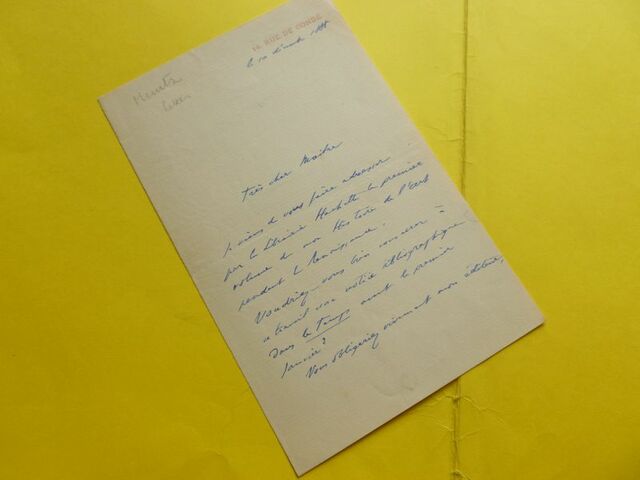 14, RUE DE CONDÉ
le 10 décembre 1888
Muntz
Très cher Maître
Je viens de vous faire adresser
par la librairie Hachette le premier
volume de mon Histoire de l'Art
pendant la Renaissance.
Voudriez-vous bien consacrer à
ce travail une notice bibliographique
dans le Temps avant le premier
Janvier?
Vous obligeriez vivement mon éditeur,